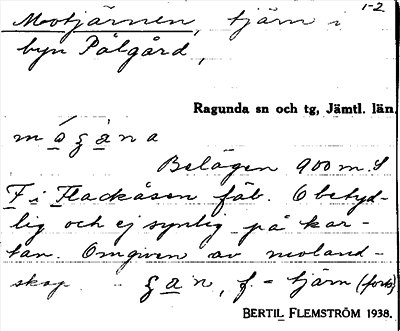 1-2
Motjärnen, tjärn i
byn Pålgård,
Ragunda sn och tg, Jämtl. län.
Belägen 900 m. S
F i Flackåsen fäb. Obetyd-
lig och ej synlig på kar-
tan. Omgiven av moland-
skap. f. = tjärn (forts)
BERTIL FLEMSTRÖM 1938.